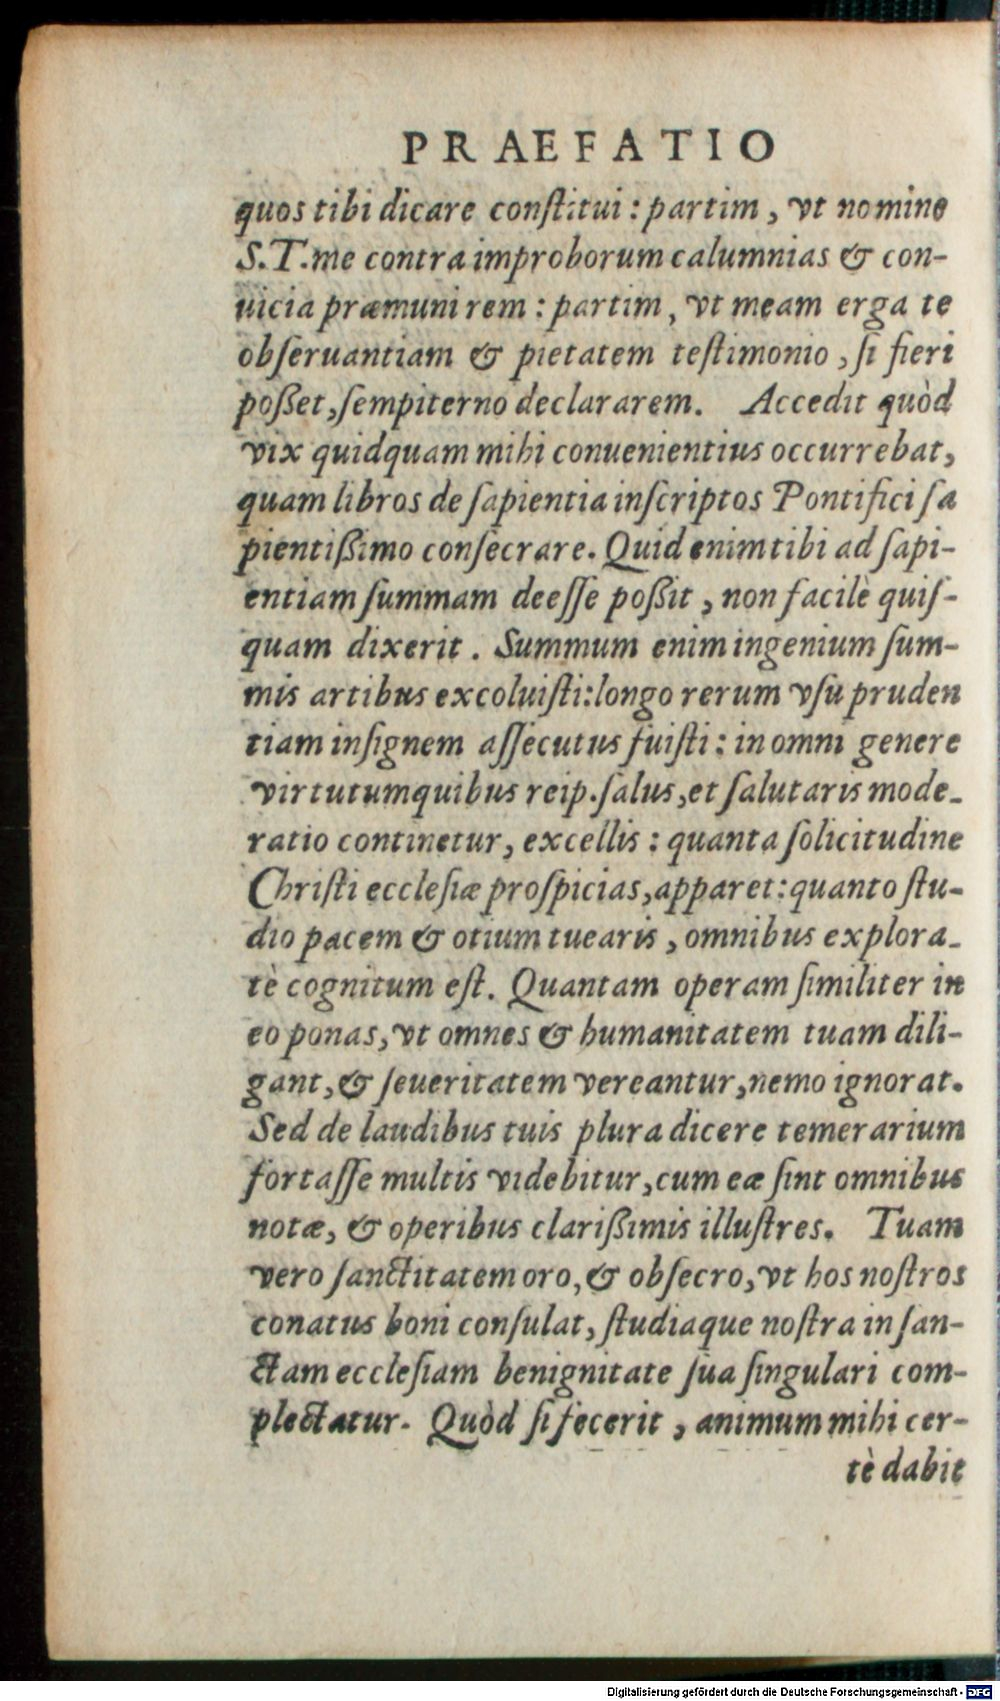 PRAEFATIO
quos tibi dicare conſtitui: partim, vt nomine
S.T. me contra improborum calumnias & con-
uicia præmunirem: partim, vt meam erga te
obſeruantiam & pietatem teſtimonio, ſi fieri
poßet, ſempiterno declararem. Accedit quòd
vix quidquam mihi conuenientius occurrebat,
quam libros de ſapientia inſcriptos Pontifici ſa
pientißimo conſecrare. Quid enim tibi ad ſapi-
entiam ſummam deeſſe poßit, non facilè quiſ-
quam dixerit. Summum enim ingenium ſum-
mis artibus excoluiſti: longo rerum vſu pruden
tiam inſignem aſſecutus fuiſti: in omni genere
virtutum quibus reip. ſalus, et ſalutaris mode-
ratio continetur, excellis: quanta ſolicitudine
Chriſti eccleſiæ proſpicias, apparet: quanto ſtu-
dio pacem & otium tuearis, omnibus explora-
tè cognitum eſt. Quantam operam ſimiliter in
eo ponas, vt omnes & humanitatem tuam dili-
gant, & ſeueritatem vereantur, nemo ignorat.
Sed de laudibus tuis plura dicere temerarium
fortaſſe multis videbitur, cum eæ ſint omnibus
notæ, & operibus clarißimis illuſtres. Tuam
vero ſanctitatem oro, & obſecro, vt hos noſtros
conatus boni conſulat, ſtudiaque noſtra in ſan-
ctam eccleſiam benignitate ſua ſingulari com-
plectatur. Quòd ſi fecerit, animum mihi cer-
tè dabit
Digitalisierung gefördert durch die Deutsche Forschungsgemeinschaft - DFG